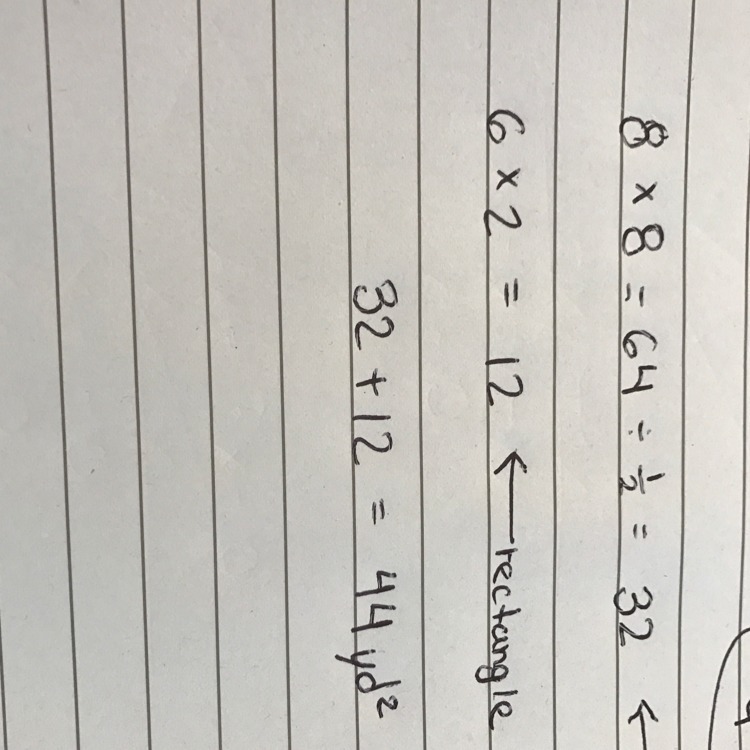 8 x 8 = 64 ÷ 1/2 = 32 ←
6 x 2 = 12 ← rectangle
32 + 12 = 44 yd²